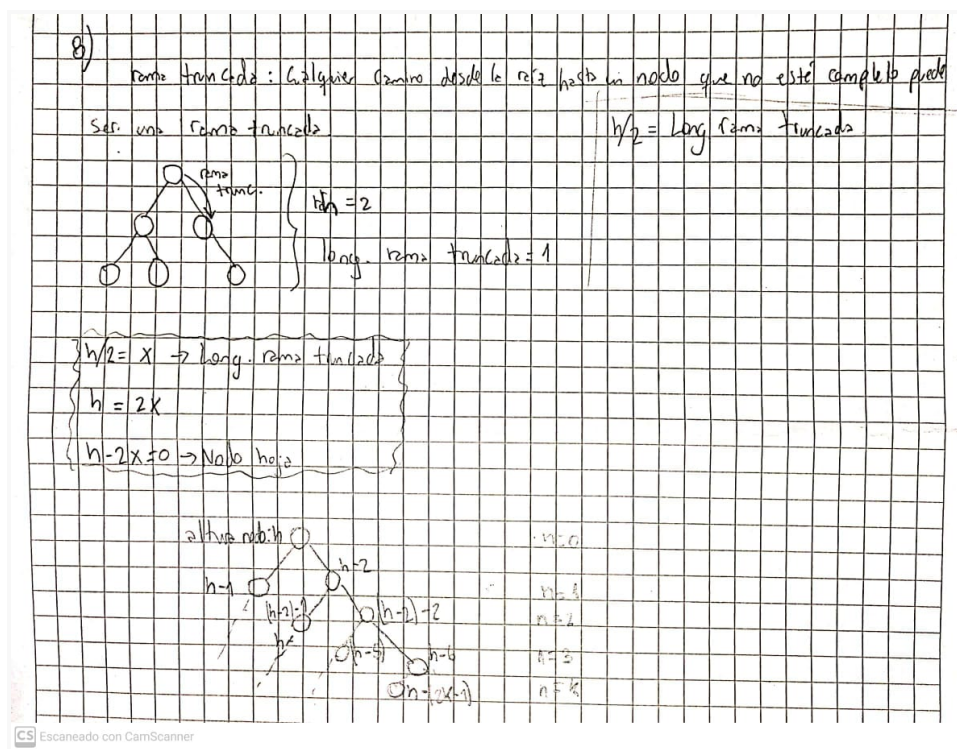 8)
rama truncada: Cualquier camino desde la raíz hasta un nodo que no esté completo puede
ser una rama truncada
h/2 = Long rama truncada
rama
trunc.
h = 2
long. rama truncada = 1
h/2 = x → Long. rama truncada
h = 2x
h-2x=0 → Nodo hoja
altura nodo: h
n=0
h-2
h-1
n=1
(h-2)-1
(h-2)-2
n=2
(h-5)
h-6
n=3
h-(2k-1)
n=k
CS Escaneado con CamScanner